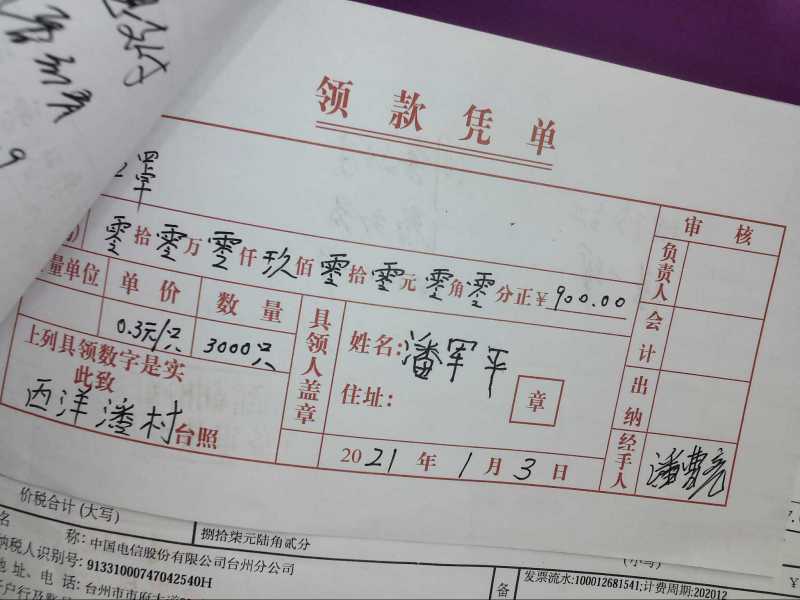 领款凭单
罩
零拾零万零仟玖佰零拾零元零角零分正¥900.00
量单位 单价 数量
0.3元/只 3000只
上列具领数字是实
此致
西洋潘村台照
具领人盖章
姓名:潘军平
住址:
章
2021年1月3日
审核
负责人
会计
出纳
经手人
价税合计(大写)
捌拾柒元陆角贰分
(小写)
名 称:中国电信股份有限公司台州分公司
纳税人识别号:91331000747042540H
地址、电话:台州市市府大道
备
发票流水:100012681541;计费周期:202012